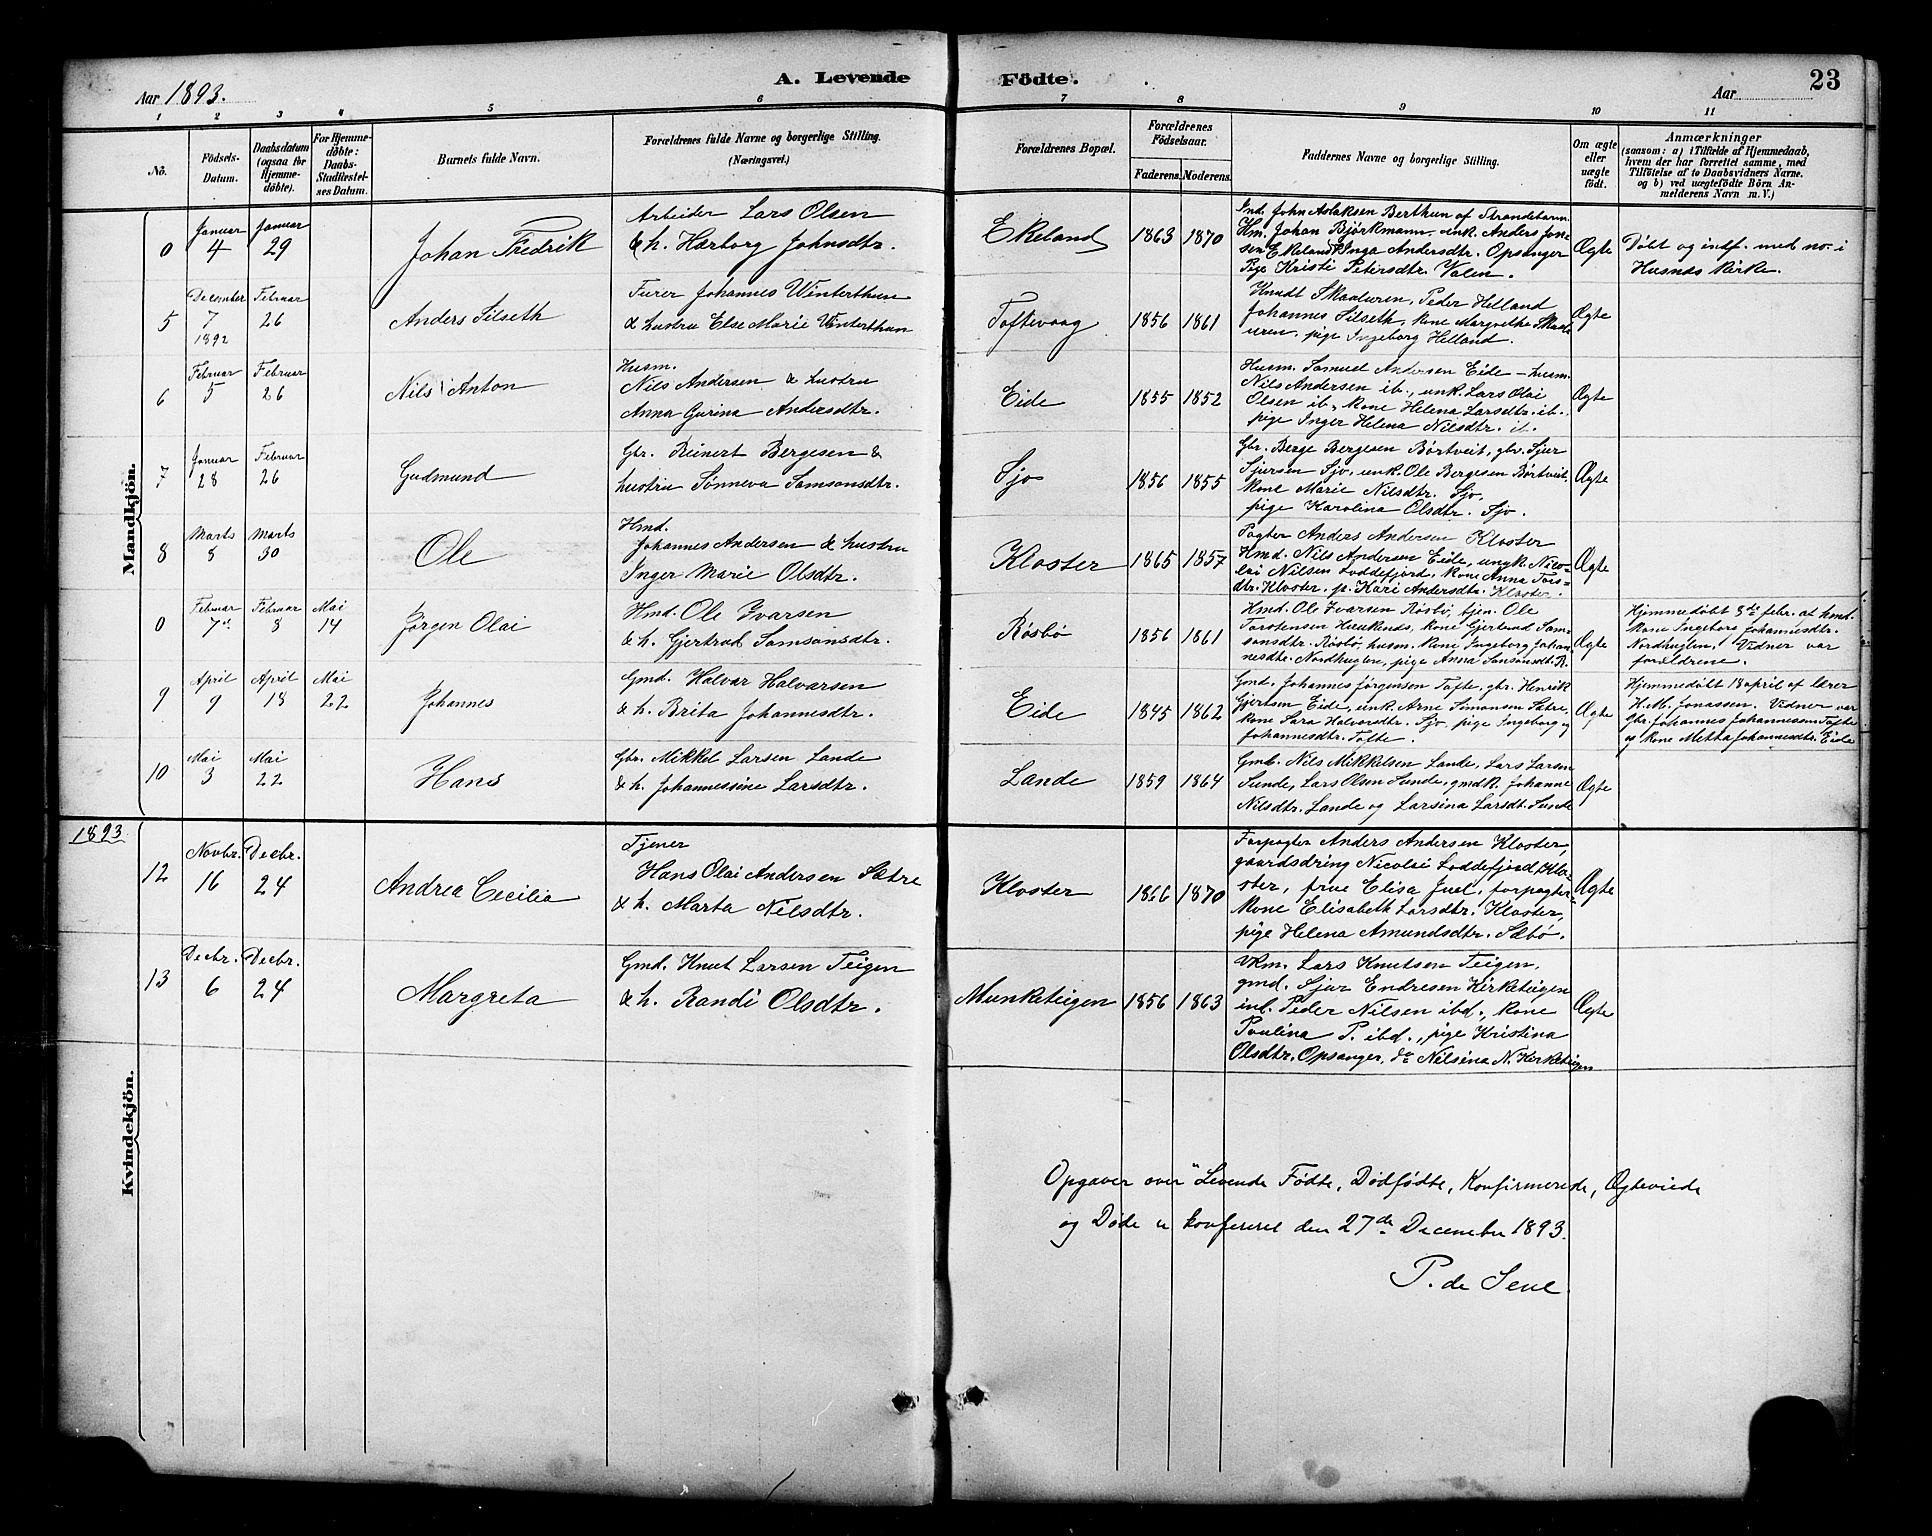 Aar 1893.
A. Levende Födte.
Aar
23
1 2 3 4 5 6 7 8 9 10 11
Nö.
Födsels-
Datum.
Daabsdatum
(ogsaa för
Hjemme-
döbte).
For Hjemme-
döbte:
Daabs-
Stadfæstel-
ses Datum.
Barnets fulde Navn.
Forældrenes fulde Navne og borgerlige Stilling.
(Næringsvei.)
Forældrenes Bopæl.
Forældrenes
Födselsaar.
Faderens. Moderens.
Faddernes Navne og borgerlige Stilling.
Om ægte
eller
uægte
födt.
Anmærkninger
(saasom: a) i Tilfælde af Hjemmedaab,
hvem der har forrettet samme, med
Tilföielse af to Daabsvidners Navne.
og b) ved uægtefödte Börn An-
melderens Navn m. V.)
Mandkjön.
0
Januar
4
Januar
29
Johan Fredrik
Arbeider Lars Olsen
& h. Hærborg Johnsdtr.
Ekeland
1863 1870
Ind. John Aslaksen Berthun af Strandebarm
Hm. Johan Björkmann, unk. Anders Jon-
sen Ekeland, Inga Andersdtr. Opsanger
Pige Kristi Petersdtr. Valen.
Ægte
Döbt og indf. med no. i
Husnæs Kirke.
5
December
7
1892
Februar
26
Anders Silseth
Furer Johannes Winterthun
& hustru Else Marie Winterthun
Toftevaag
1856 1861
Knudt Skaaluren, Peder Helland
Johannes Silseth, Kone Margrethe Skaal-
uren, pige Ingeborg Helland.
Ægte
6
Februar
5
Februar
26
Nils Anton
Husm.
Nils Andersen & hustru
Anna Gurina Andersdtr.
Eide
1855 1852
Husm. Samuel Andersen Eide - husm.
Nils Andersen ib., unk. Lars Olai
Olsen ib., Kone Helena Larsdtr. ib.
pige Inger Helena Nilsdtr. ib.
Ægte
7
Januar
28
Februar
26
Gudmund
Gbr. Reinert Bergesen &
hustru Sønneva Samsonsdtr.
Sjo
1856 1855
Gbr. Berge Bergesen Børtveit, gbr. Sjur
Sjursen Sjo, unk. Ole Bergesen Börtveit,
Kone Marie Nilsdtr. Sjo,
pige Karolina Olsdtr. Sjo.
Ægte
8
Marts
8
Marts
30
Ole
Hmd.
Johannes Andersen & hustru
Inger Marie Olsdtr.
Kloster
1865 1857
Pagter Anders Andersen Kloster
Hmd. Nils Andersen Eide, ungk. Nico-
lai Nilsen Loddefjord, Kone Anna Tors-
dtr. Kloster, p. Kari Andersdtr. Kloster.
Ægte
0
Februar
7de
Februar
8
Mai
14
Jörgen Olai
Hmd. Ole Ivarsen
& h. Gjertrud Samsonsdtr.
Rösbö
1856 1861
Hmd. Ole Ivarsen Rösbö, tjen. Ole
Torstensen Haukenæs, Kone Gjertrud Sam-
sonsdtr. Rösbö, husm. Kone Ingeborg Johan-
nesdtr. Nordhuglen, pige Anna Samsonsdt. R.
Ægte
Hjemmedöbt 8de febr. af hmd.
Kone Ingeborg Johannesdtr.
Nordhuglen, Vidner var
forældrene.
9
April
9
April
18
Mai
22
Johannes
Gmd. Halvar Halvarsen
& h. Brita Johannesdtr.
Eide
1845 1862
Gmd. Johannes Jörgensen Tofte, gbr. Henrik
Gjertsen Eide, unk. Arne Simonsen Sætre,
Kone Sara Halvorsdtr. Sjo, pige Ingeborg
Johannesdtr. Tofte.
Ægte
Hjemmedöbt 18 april af lærer
H. M. Jonassen. Vidner var
Gbr. Johannes Johannessen Tofte
og Kone Metta Johannesdtr. Eide
10
Mai
3
Mai
22
Hans
Gbr. Mikkel Larsen Lande
& h. Johannessine Larsdtr.
Lande
1859 1864
Gmd. Nils Mikkelsen Lande, Lars Larsen
Sunde, Lars Olsen Sunde, gmdk. Johanne
Nilsdtr. Lande og Larsina Larsdt. Sunde
Ægte
1893
Kvindekjön.
12
Novbr.
16
Decbr.
24
Andrea Cecilia
Tjener
Hans Olai Andersen Sætre
& h. Marta Nilsdtr.
Kloster
1866 1870
Forpagter Anders Andersen Kloster,
gaardsdreng Nicolai Loddefjord, Klo-
ster, frue Elisa Juel, forpagter-
Kone Elisabeth Larsdtr. Kloster,
pige Helena Amundsdtr. Sæbö.
Ægte
13
Decbr.
6
Decbr.
24
Margreta
Gmd. Knut Larsen Teigen
& h. Randi Olsdtr.
Munketeigen
1856 1863
Vkm. Lars Knutsen Teigen,
gmd. Sjur Endresen Kirketeigen
ind. Peder Nilsen ibd., Kone
Paulina P. ibd., pige Kristina
Olsdtr. Opsanger, do Nilsina N. Kirketeigen
Ægte
Opgaver over "Levende Födte, Dödfödte, Konfirmerede, Ægteviede
og Döde er konfereret den 27de December 1893.
P. de Seue